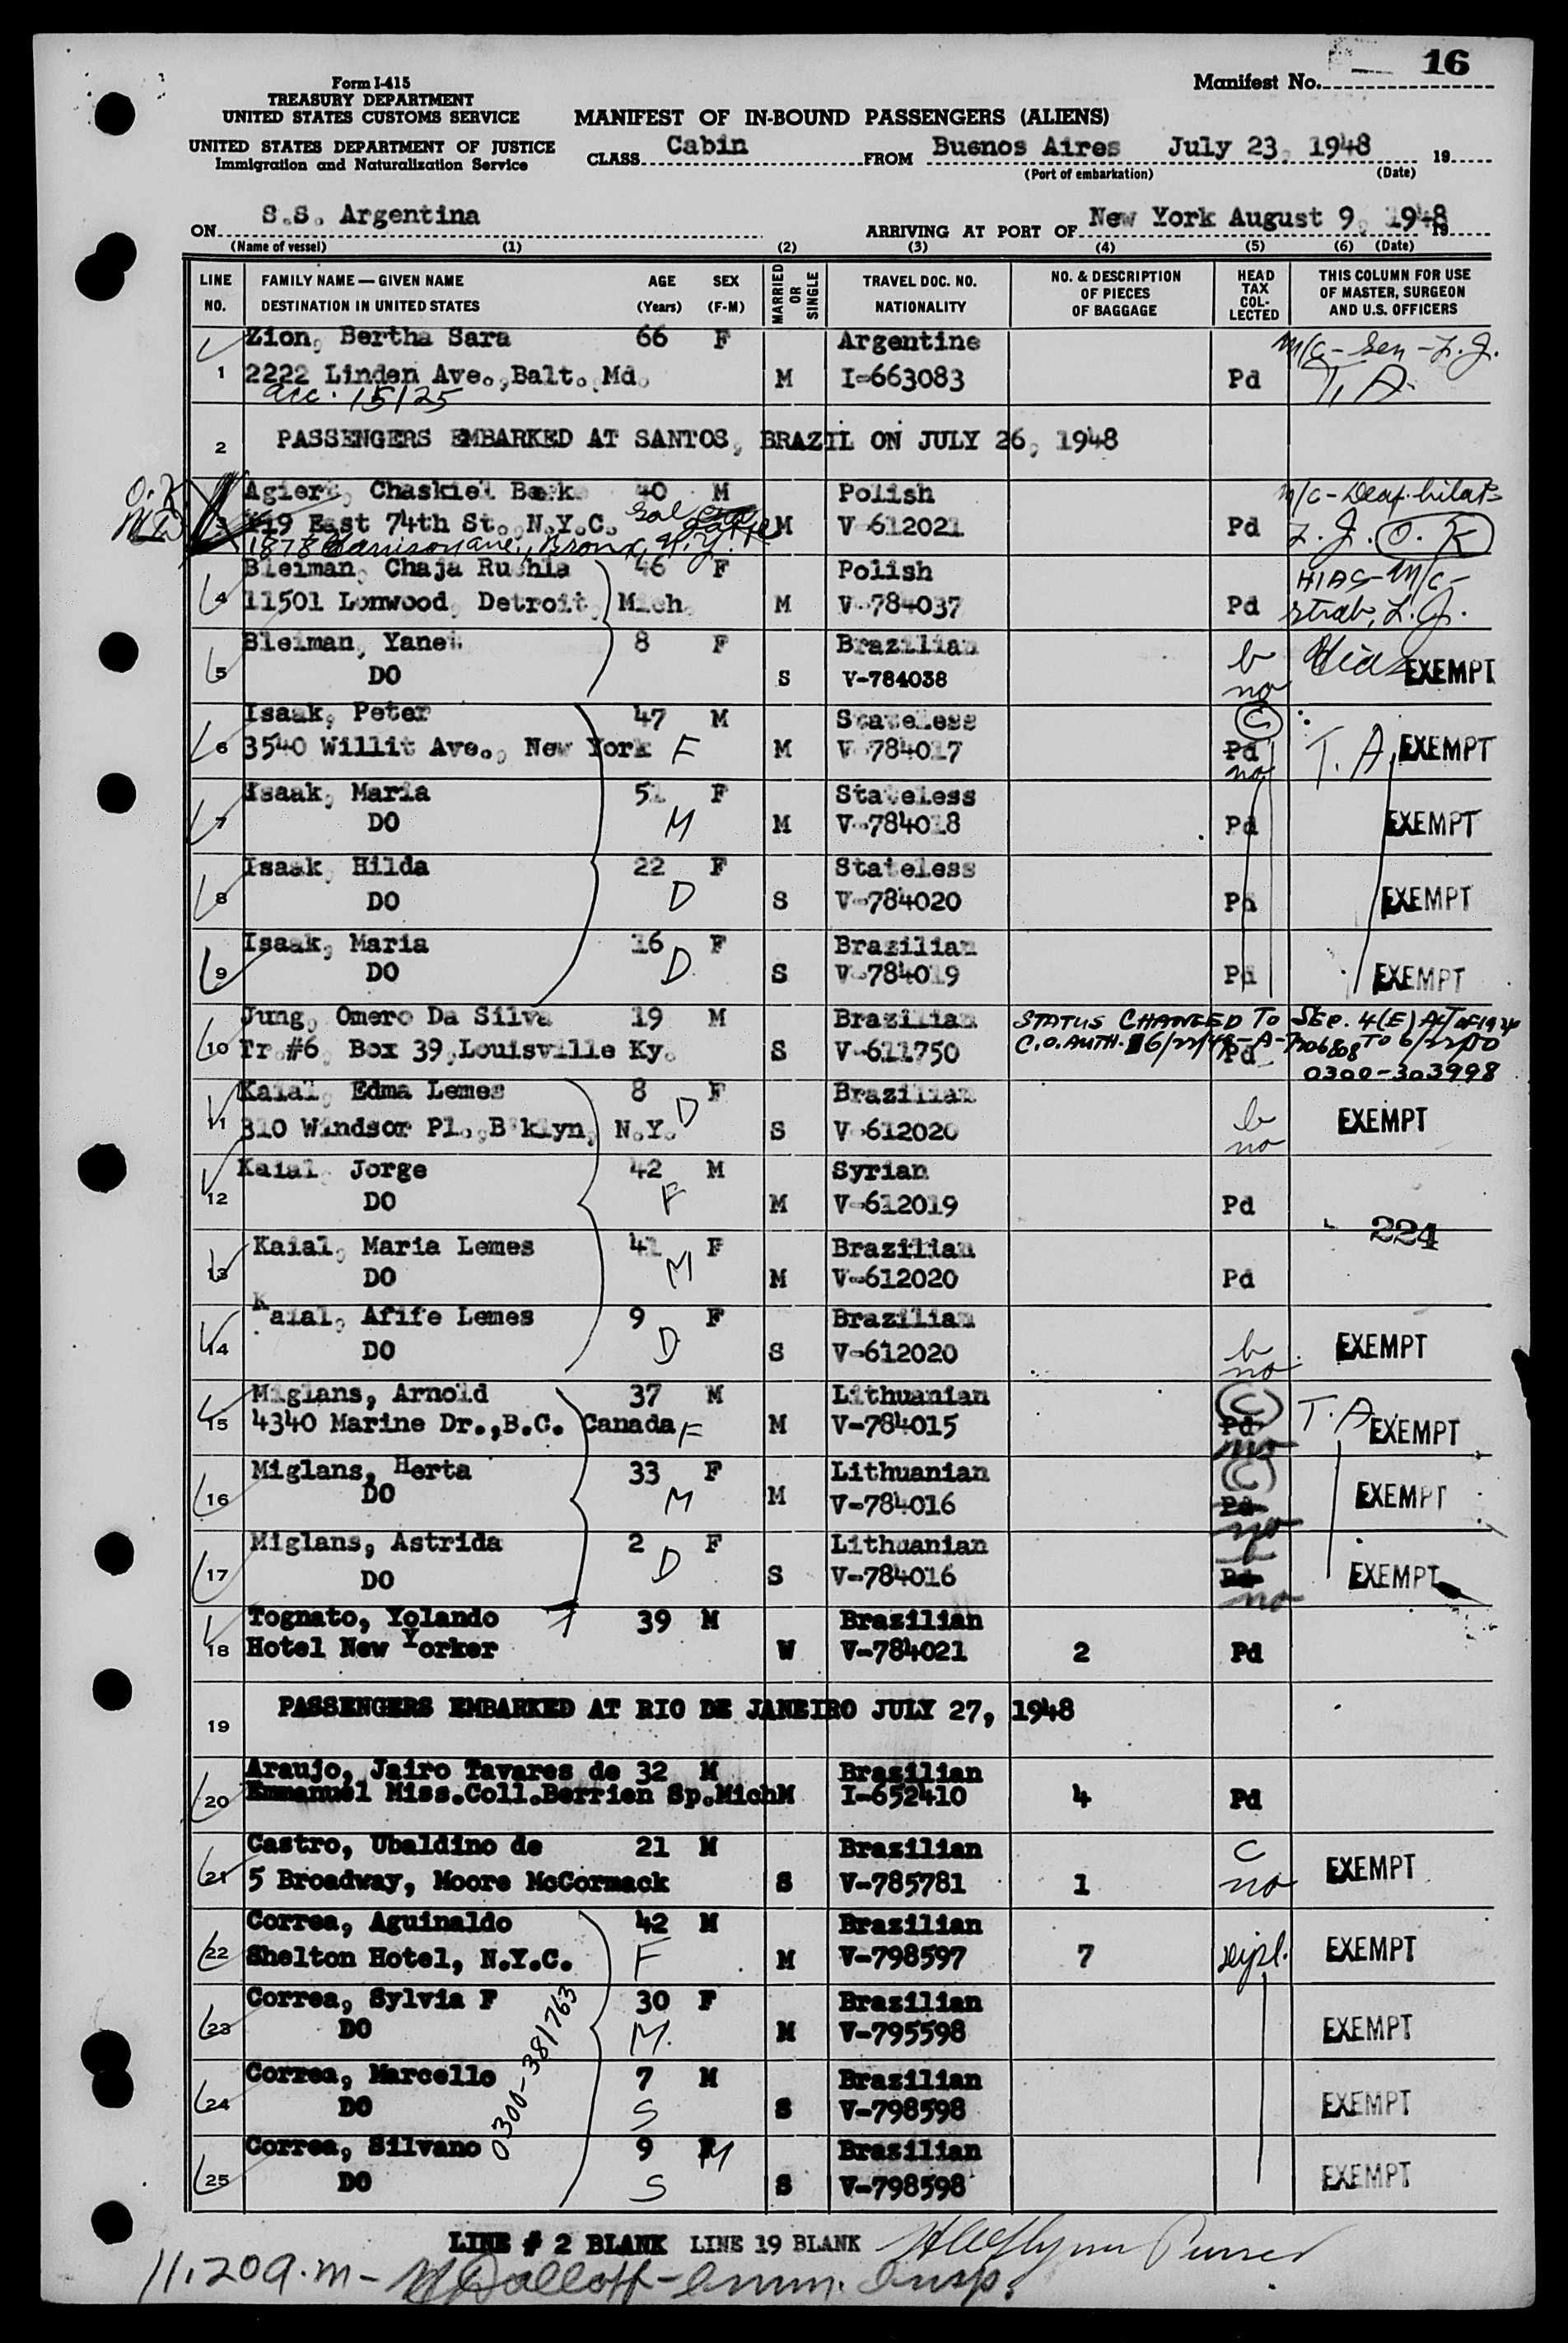 16
Form I-415
TREASURY DEPARTMENT
UNITED STATES CUSTOMS SERVICE
UNITED STATES DEPARTMENT OF JUSTICE
Immigration and Naturalization Service
Manifest No.
MANIFEST OF IN-BOUND PASSENGERS (ALIENS)
CLASS Cabin FROM Buenos Aires July 23, 1948 19
(Port of embarkation) (Date)
ON S.S. Argentina ARRIVING AT PORT OF New York August 9, 1948 19
(Name of vessel) (1) (2) (3) (4) (5) (6) (Date)
LINE NO. FAMILY NAME — GIVEN NAME DESTINATION IN UNITED STATES AGE (Years) SEX (F-M) MARRIED OR SINGLE TRAVEL DOC. NO. NATIONALITY NO. & DESCRIPTION OF PIECES OF BAGGAGE HEAD TAX COLLECTED THIS COLUMN FOR USE OF MASTER, SURGEON AND U.S. OFFICERS
Zion, Bertha Sara 66 F Argentine M/C - Sen - L.J.
1 2222 Linden Ave., Balt. Md. M I-663083 Pd T.A.
acc. 15/25
2 PASSENGERS EMBARKED AT SANTOS, BRAZIL ON JULY 26, 1948
Chaskiel 40 M Polish
3 East 74th St. N.Y.C. M V-612021 Pd L.J. O.K
1878 Bronx, N.Y.
Bleiman, Chaja 46 F Polish HIAS - M/C -
4 11501 Lonwood, Detroit, Mich. M V-784037 Pd L.J.
Bleiman, Yanet 8 F Brazilian b Hias
5 DO S V-784038 no EXEMPT
Isaak, Peter 47 M Stateless C
6 3540 Willit Ave., New York F M V-784017 Pd no T.A. EXEMPT
Isaak, Maria 51 F Stateless
7 DO M M V-784018 Pd EXEMPT
Isaak, Hilda 22 F Stateless
8 DO D S V-784020 Pd EXEMPT
Isaak, Maria 16 F Brazilian
9 DO D S V-784019 Pd EXEMPT
Jung, Omero Da Silva 19 M Brazilian STATUS CHANGED TO SEC. 4(E) ACT OF 1924
10 Tr #6, Box 39, Louisville Ky. S V-611750 C.O. AUTH. Pd
0300-303998
Kaial, Edma Lemes 8 D F Brazilian b
11 310 Windsor Pl., B'klyn, N.Y. S V-612020 no EXEMPT
Kaial, Jorge 42 M Syrian
12 DO F M V-612019 Pd
224
Kaial, Maria Lemes 41 F Brazilian
13 DO M M V-612020 Pd
Kaial, Afife Lemes 9 F Brazilian b
14 DO D S V-612020 no EXEMPT
Miglans, Arnold 37 M Lithuanian C T.A.
15 4340 Marine Dr., B.C. Canada F M V-784015 Pd no EXEMPT
Miglans, Herta 33 F Lithuanian C
16 DO M M V-784016 Pd no EXEMPT
Miglans, Astrida 2 F Lithuanian b
17 DO D S V-784016 Pd no EXEMPT
Tognato, Yolando 39 M Brazilian
18 Hotel New Yorker W V-784021 2 Pd
19 PASSENGERS EMBARKED AT RIO DE JANEIRO JULY 27, 1948
Araujo, Jairo Tavares de 32 M Brazilian
20 Emmanuel Miss.Coll.Berrien Sp.Mich M I-652410 4 Pd
Castro, Ubaldino de 21 M Brazilian C
21 5 Broadway, Moore McCormack S V-785781 1 no EXEMPT
Correa, Aguinaldo 42 M Brazilian
22 Shelton Hotel, N.Y.C. F M V-798597 7 EXEMPT
Correa, Sylvia F 30 F Brazilian
23 DO M. M V-795598 EXEMPT
0300-381763
Correa, Marcello 7 M Brazilian
24 DO S S V-798598 EXEMPT
Correa, Silvano 9 M Brazilian
25 DO S S V-798598 EXEMPT
LINE # 2 BLANK LINE 19 BLANK Purser
11.20 a.m - Imm. Insp.